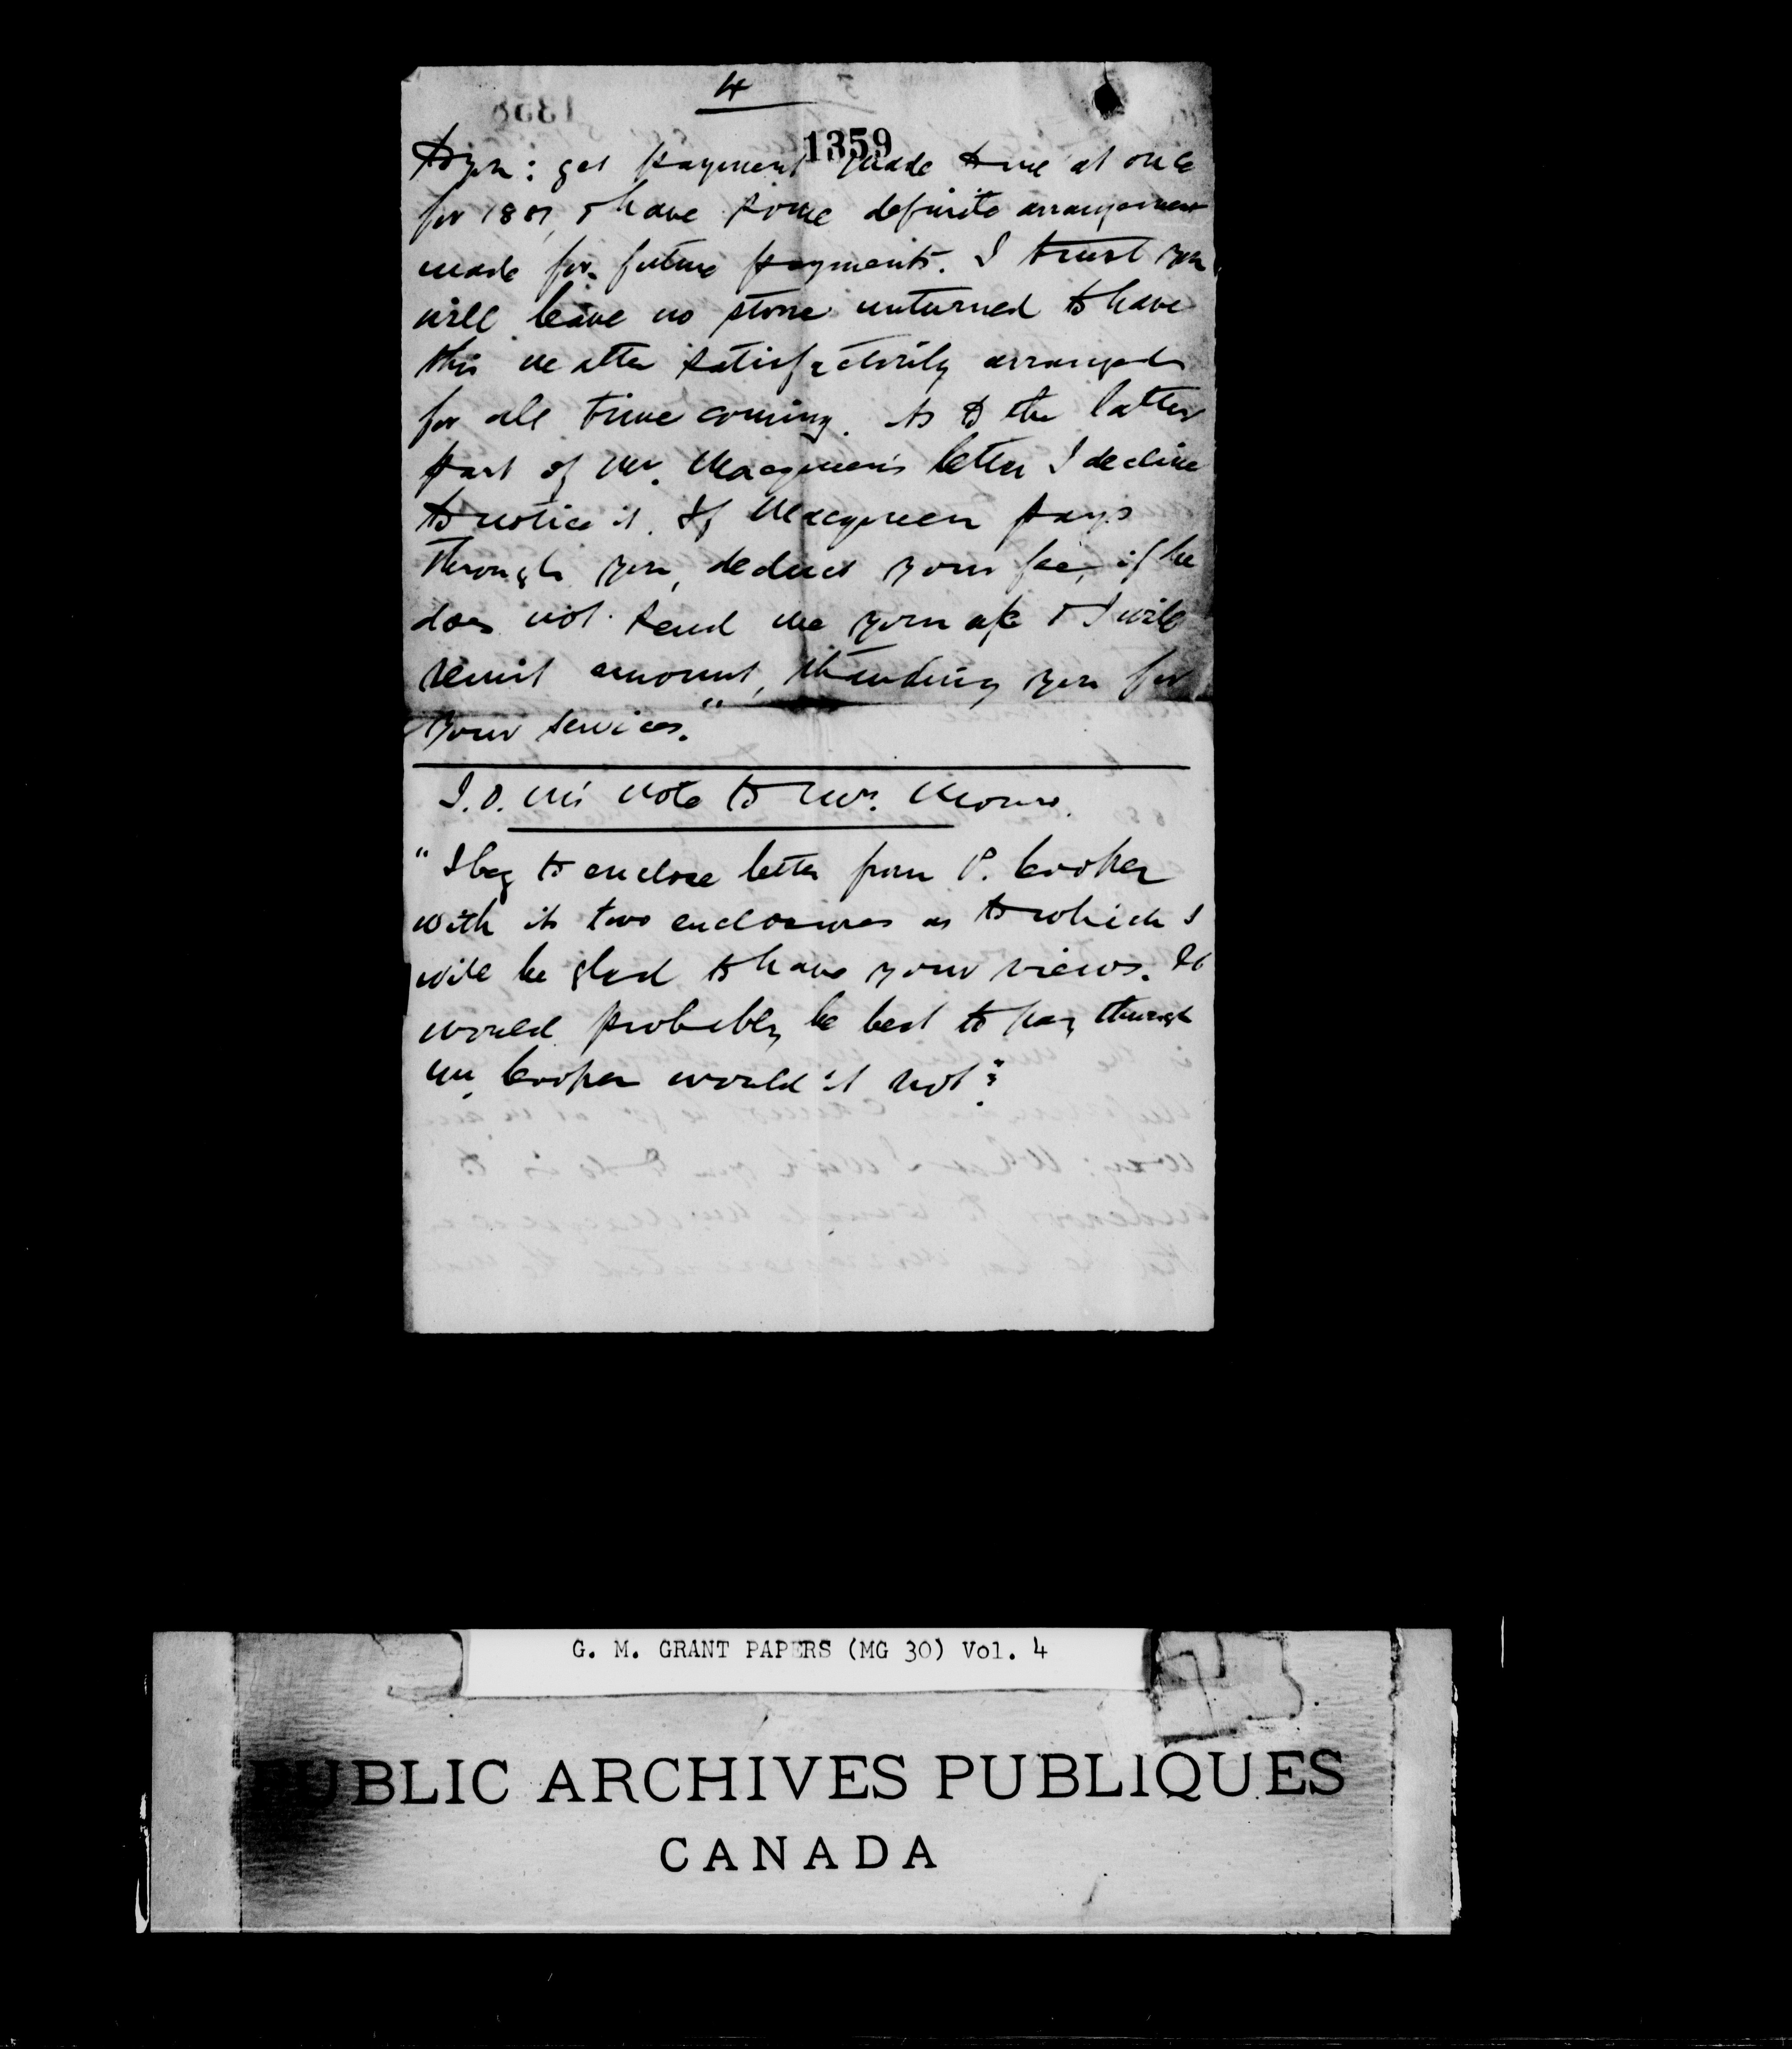 4
1358
1359
to you: get payment made to me at once
for 1887, & have some definite arrangement
made for future payments. I trust you
will leave no stone unturned to have
this matter satisfactorily arranged
for all time coming. As to the latter
part of Mr. Macqueen's letter I decline
to notice it. If Macqueen pays
through you, deduct your fee, if he
does not send me your a/c & I will
remit amount, thanking you for
your services."
I.D. M's note to Mr. Monro.
"I beg to enclose letter from P. Cooper
with its two enclosures as to which I
will be glad to have your views. It
would probably be best to pay through
Mr. Cooper would it not?"
G. M. GRANT PAPERS (MG 30) Vol. 4
PUBLIC ARCHIVES PUBLIQUES
CANADA